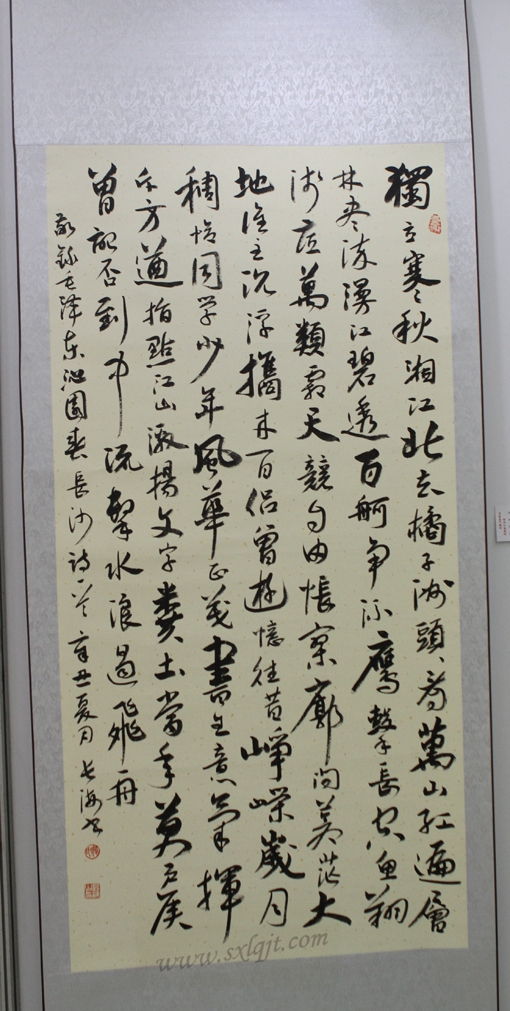 獨立寒秋湘江北去橘子洲頭看萬山紅遍層
林盡染漫江碧透百舸爭流鷹擊長空魚翔
淺底萬類霜天競自由悵寥廓問蒼茫大
地誰主沉浮攜來百侶曾遊憶往昔崢嶸歲月
稠恰同學少年風華正茂書生意氣揮
斥方遒指點江山激揚文字糞土當年萬戶侯
曾記否到中流擊水浪遏飛舟
敬錄毛澤東沁園春長沙詩一首辛丑夏月長海書
www.sxlqjt.com